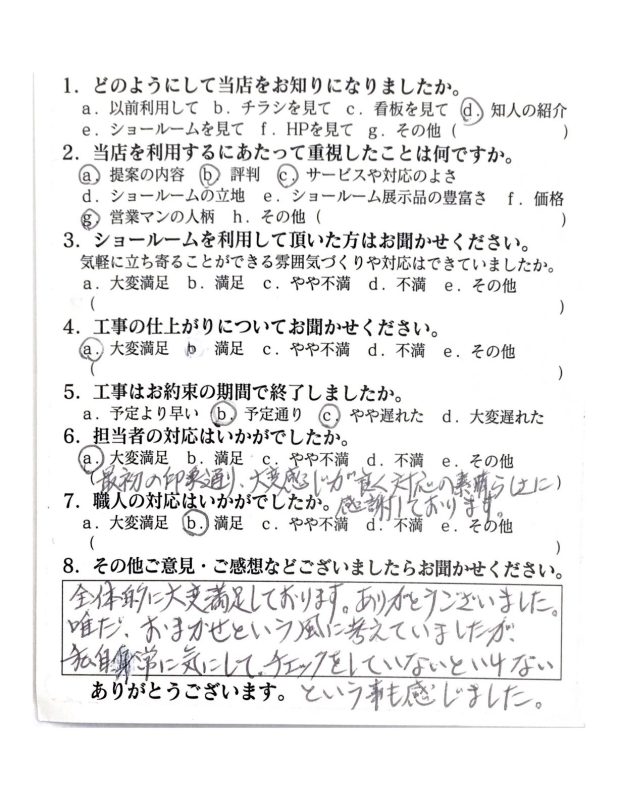 1．どのようにして当店をお知りになりましたか。
a．以前利用して b．チラシを見て c．看板を見て d．知人の紹介
e．ショールームを見て f．HPを見て g．その他（　　　　　）
2．当店を利用するにあたって重視したことは何ですか。
a．提案の内容 b．評判 c．サービスや対応のよさ
d．ショールームの立地 e．ショールーム展示品の豊富さ f．価格
g．営業マンの人柄 h．その他（　　　　　）
3．ショールームを利用して頂いた方はお聞かせください。
気軽に立ち寄ることができる雰囲気づくりや対応はできていましたか。
a．大変満足 b．満足 c．やや不満 d．不満 e．その他
（　　　　　）
4．工事の仕上がりについてお聞かせください。
a．大変満足 b 満足 c．やや不満 d．不満 e．その他
（　　　　　）
5．工事はお約束の期間で終了しましたか。
a．予定より早い b．予定通り c．やや遅れた d．大変遅れた
6．担当者の対応はいかがでしたか。
a．大変満足 b．満足 c．やや不満 d．不満 e．その他
（最初の印象通り、大変感じが良く対応の素晴らしさに
感謝しております。
7．職人の対応はいかがでしたか。
a．大変満足 b．満足 c．やや不満 d．不満 e．その他
（　　　　　）
8．その他ご意見・ご感想などございましたらお聞かせください。
全体的に大変満足しております。ありがとうございました。
唯だ、おまかせという風に考えていましたが、
私自身常に気にして、チェックをしていないといけない
という事も感じました。
ありがとうございます。